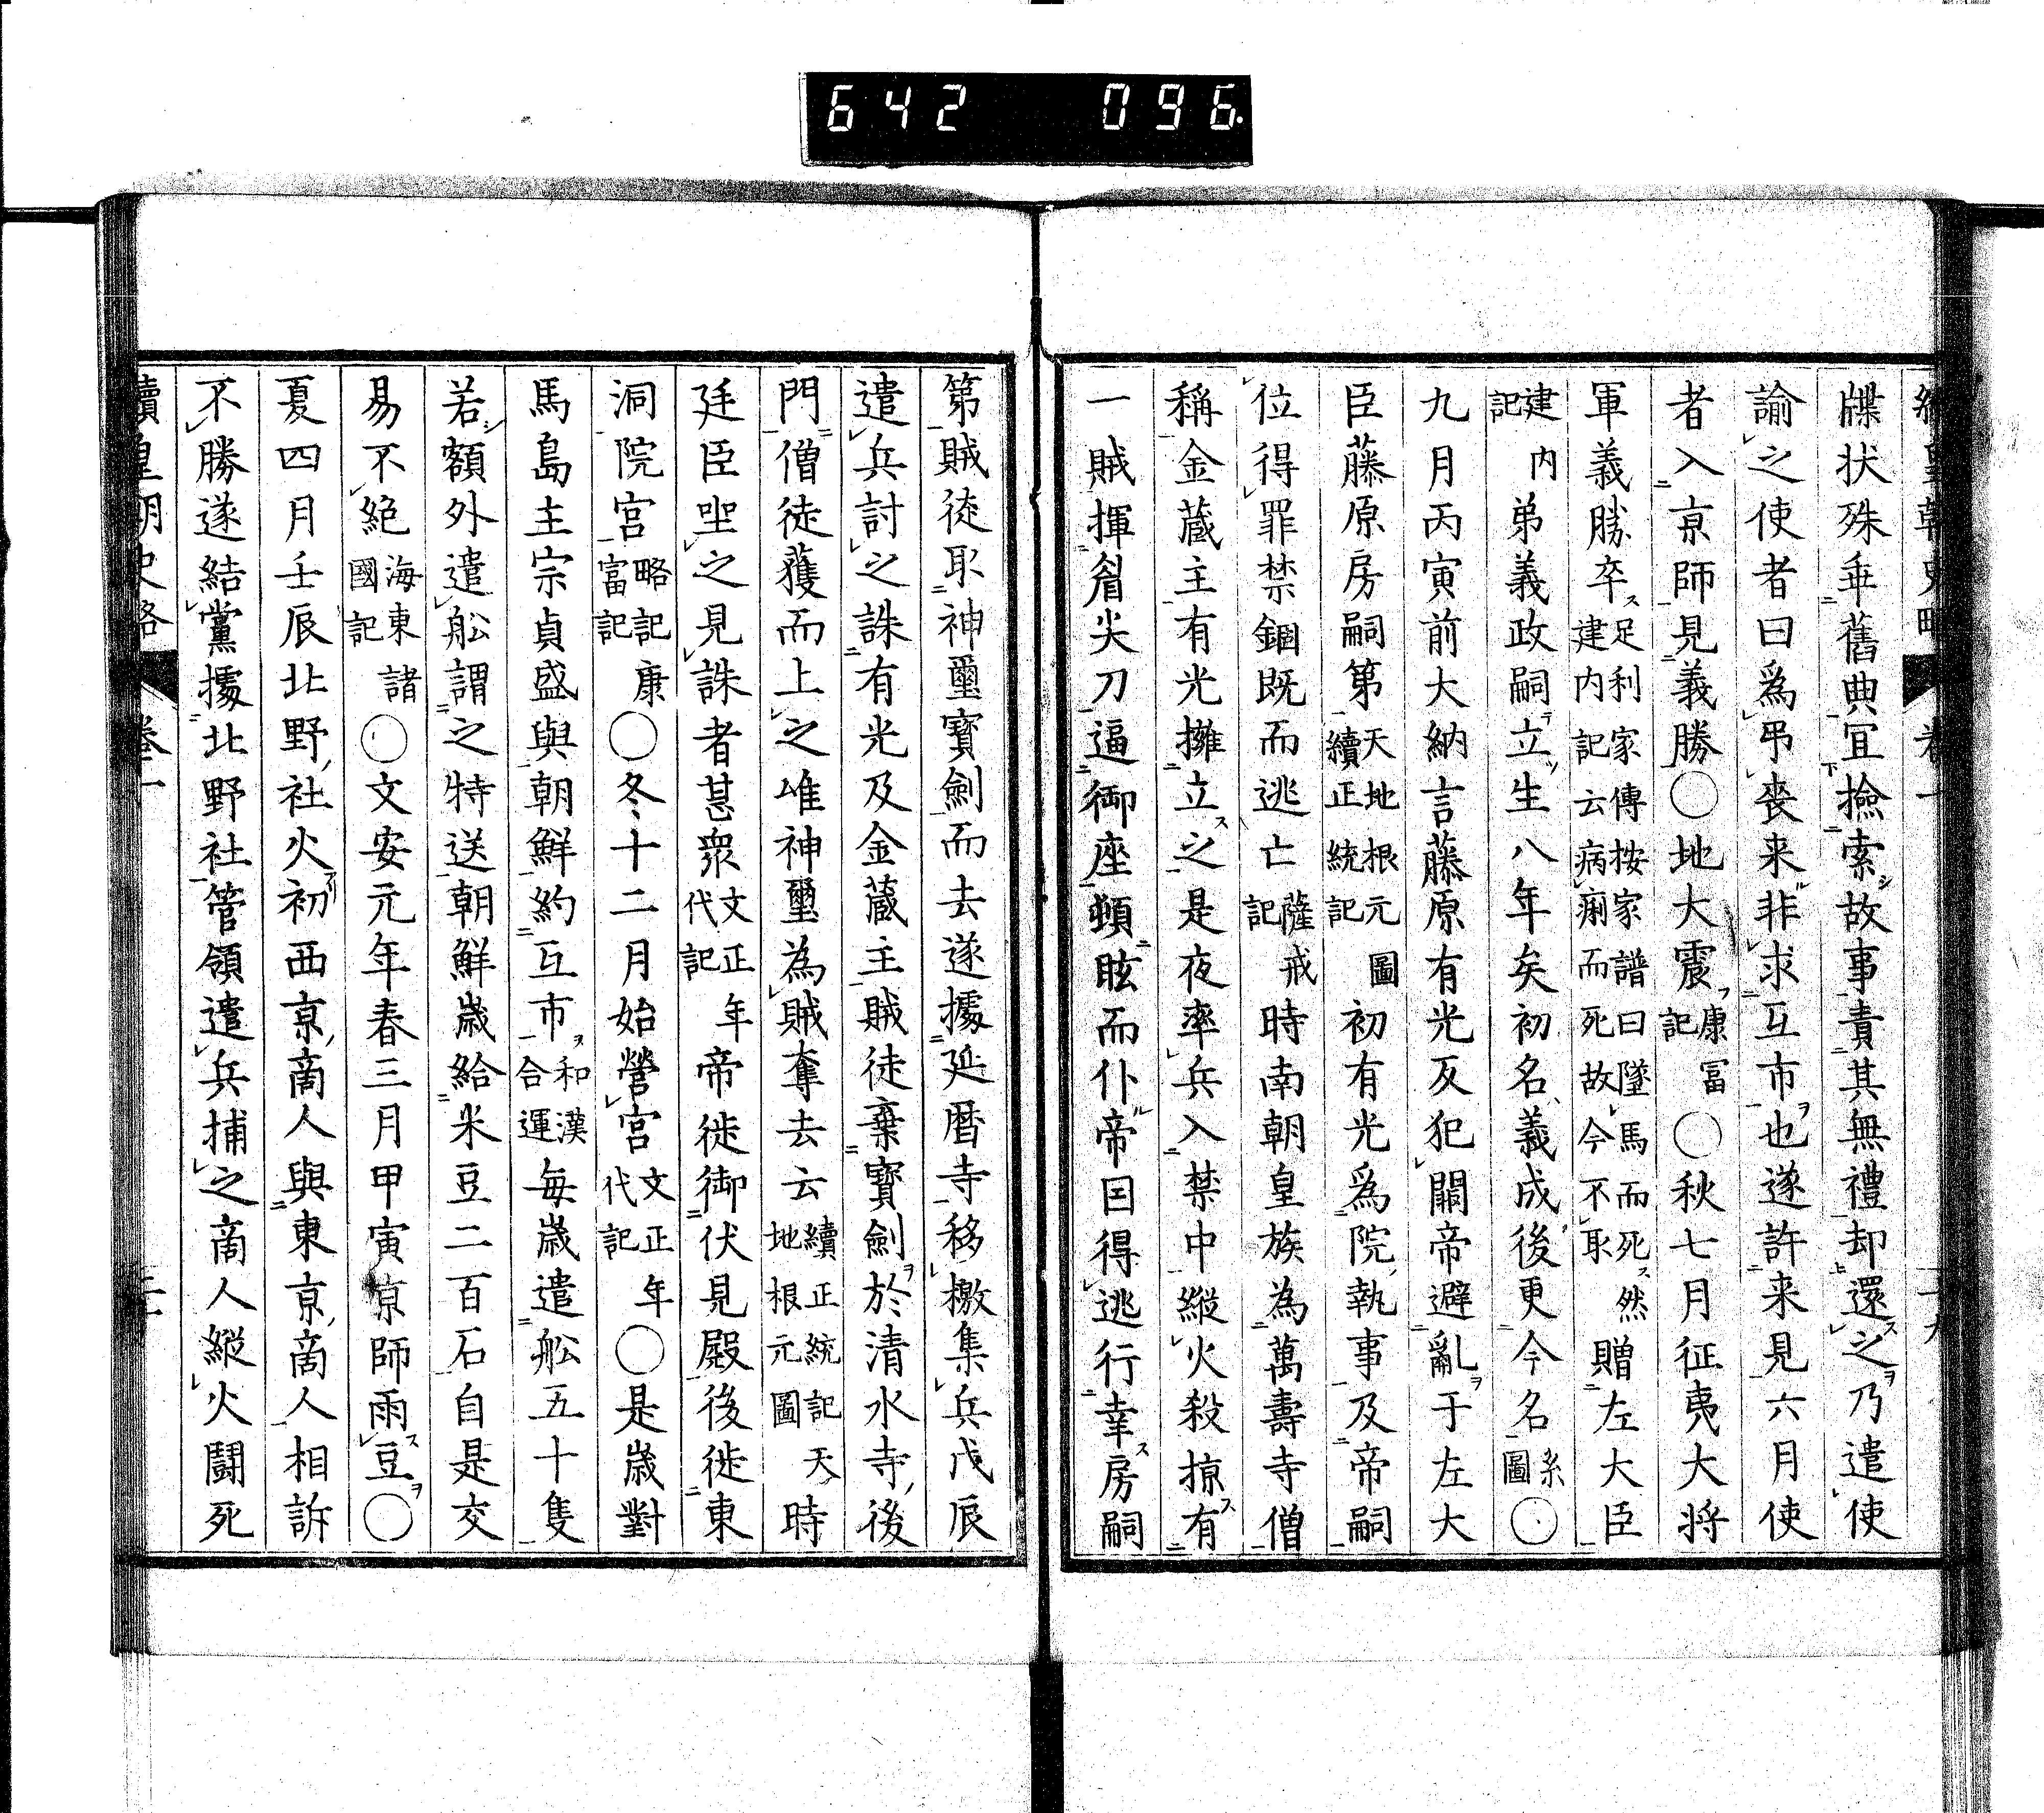 642 096
牒状殊乖舊典宜撿索故事責其無禮却還之乃遣使
諭之使者曰爲弔喪来非求互市也遂許来見六月使
者入京師見義勝○地大震康冨記○秋七月征夷大将
軍義勝卒足利家傳按家譜曰墜馬而死然建内記云病痢而死故今不取贈左大臣
建内記弟義政嗣立生八年矣初名義成後更今名系圖○
九月丙寅前大納言藤原有光反犯闕帝避亂于左大
臣藤原房嗣第天地根元圖續正統記初有光爲院執事及帝嗣
位得罪禁錮既而逃亡薩戒記時南朝皇族為萬壽寺僧
稱金蔵主有光擁立之是夜率兵入禁中縱火殺掠有
一賊揮眉尖刀逼御座頓眩而仆帝因得逃行幸房嗣
第賊徒取神璽寶劍而去遂據延暦寺移檄集兵戊辰
遣兵討之誅有光及金蔵主賊徒棄寶劍於清水寺後
門僧徒獲而上之唯神璽為賊奪去云續正統記天地根元圖時
廷臣坐之見誅者甚衆文正年代記帝徙御伏見殿後徙東
洞院宮略記康富記○冬十二月始營宮文正年代記○是歳對
馬島主宗貞盛與朝鮮約互市和漢合運毎歳遣舩五十隻
若額外遣舩謂之特送朝鮮歳給米豆二百石自是交
易不絶海東諸國記○文安元年春三月甲寅京師雨豆○
夏四月壬辰北野社火初西京商人與東京商人相訴
不勝遂結黨據北野社管領遣兵捕之商人縦火闘死
續皇朝史略 卷一